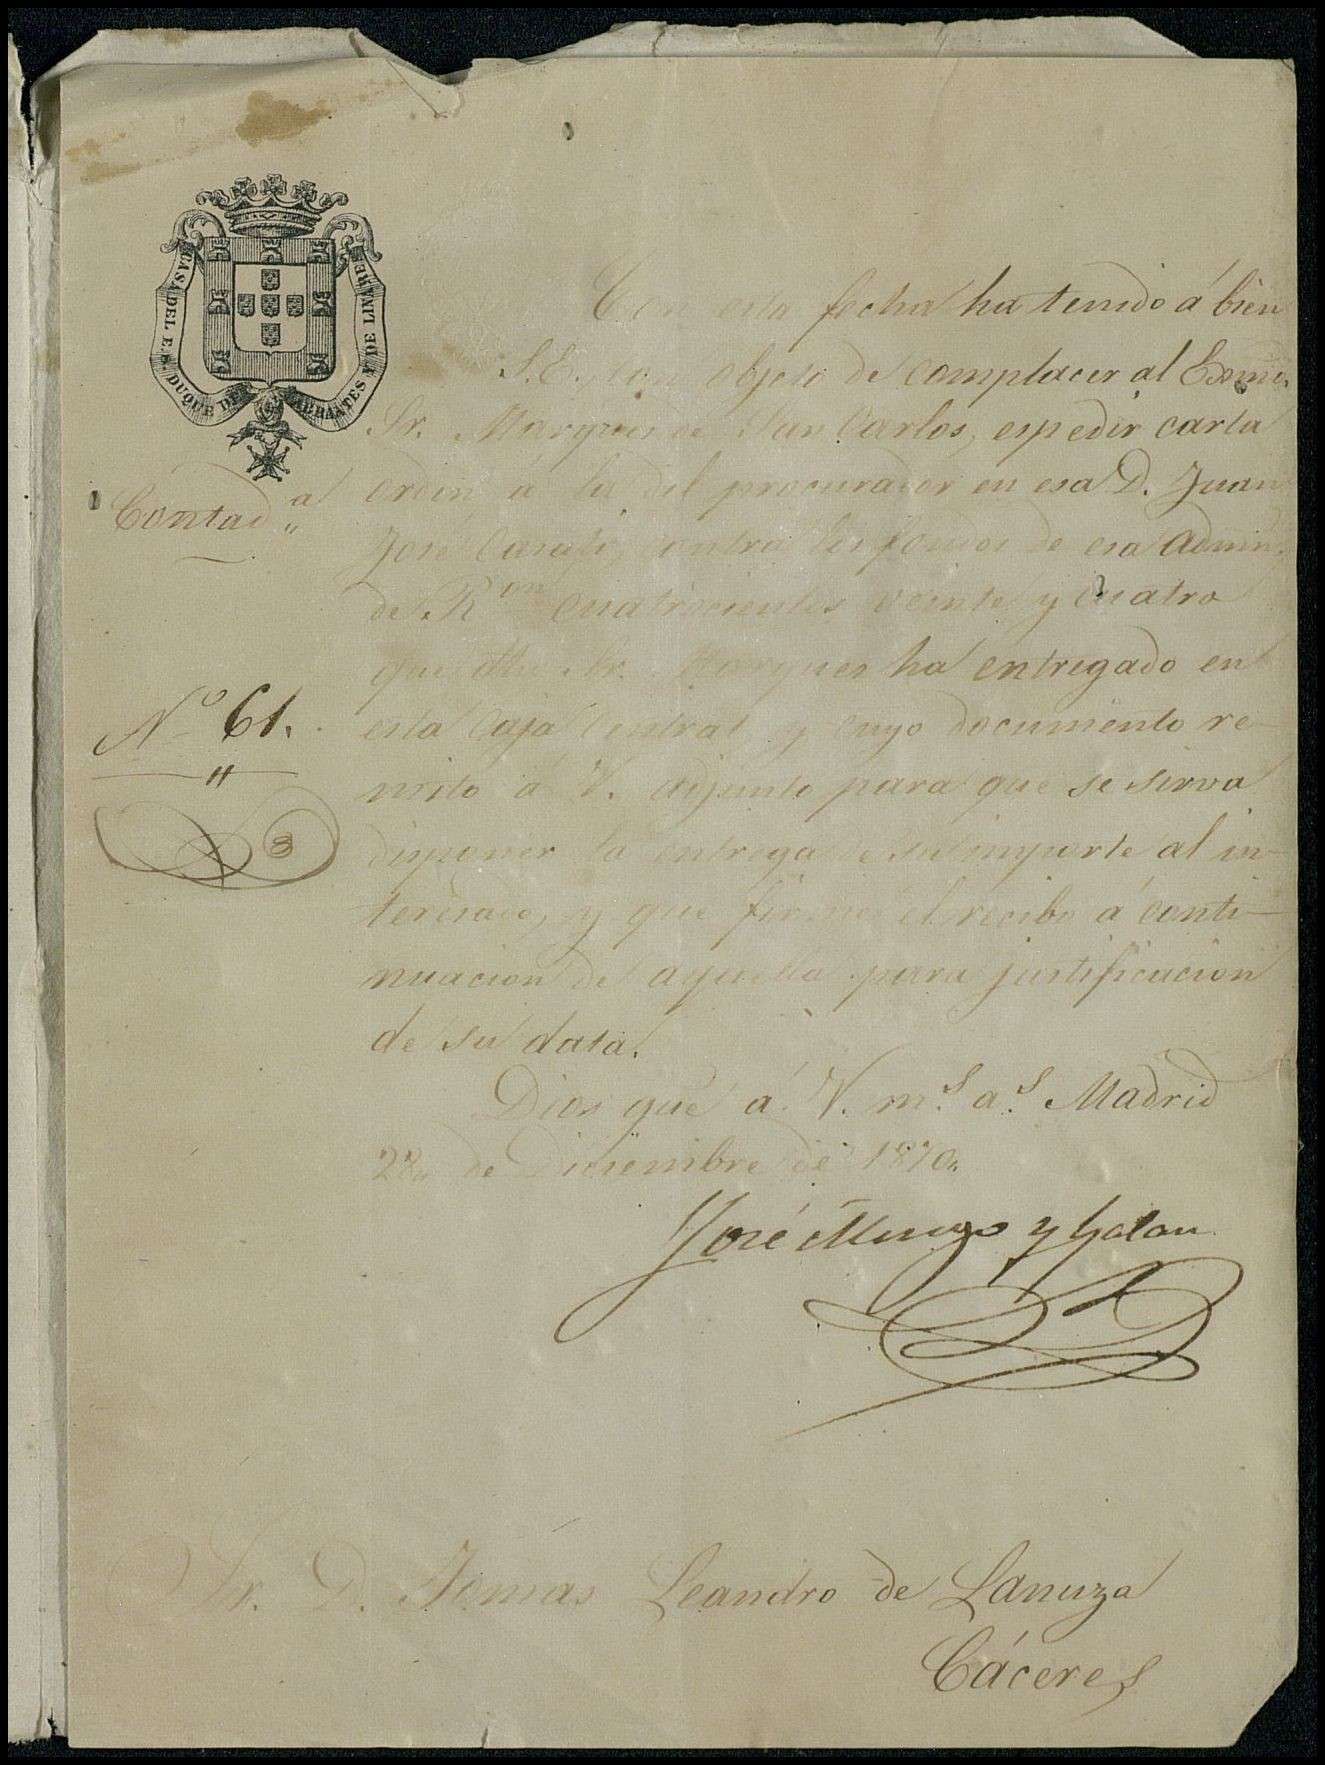 CASA DEL E. S. DUQUE DE ABRANTES Y DE LINARES
Contad.ª
Nº 61.
Con esta fecha ha tenido á bien
S.E., con objeto de complacer al Exmo.
Sr. Marques de San Carlos, espedir carta
orden a la del procurador en esa D. Juan
José contra los fondos de esa Admon.
de Rˢ ᵛⁿ cuatrocientos veinte y cuatro
que dho. Sr. Marques ha entregado en
esta Caja Central, y cuyo documento re-
mito á V. adjunto para que se sirva
disponer la entrega de su importe al in-
teresado, y que firme el recibo á conti-
nuacion de aquella para justificacion
de su data.
Dios gue á V. m.ˢ a.ˢ Madrid
de Diciembre de 1870.
José y Galan
Sr. D. Tomás Leandro de Lanuza
Cáceres